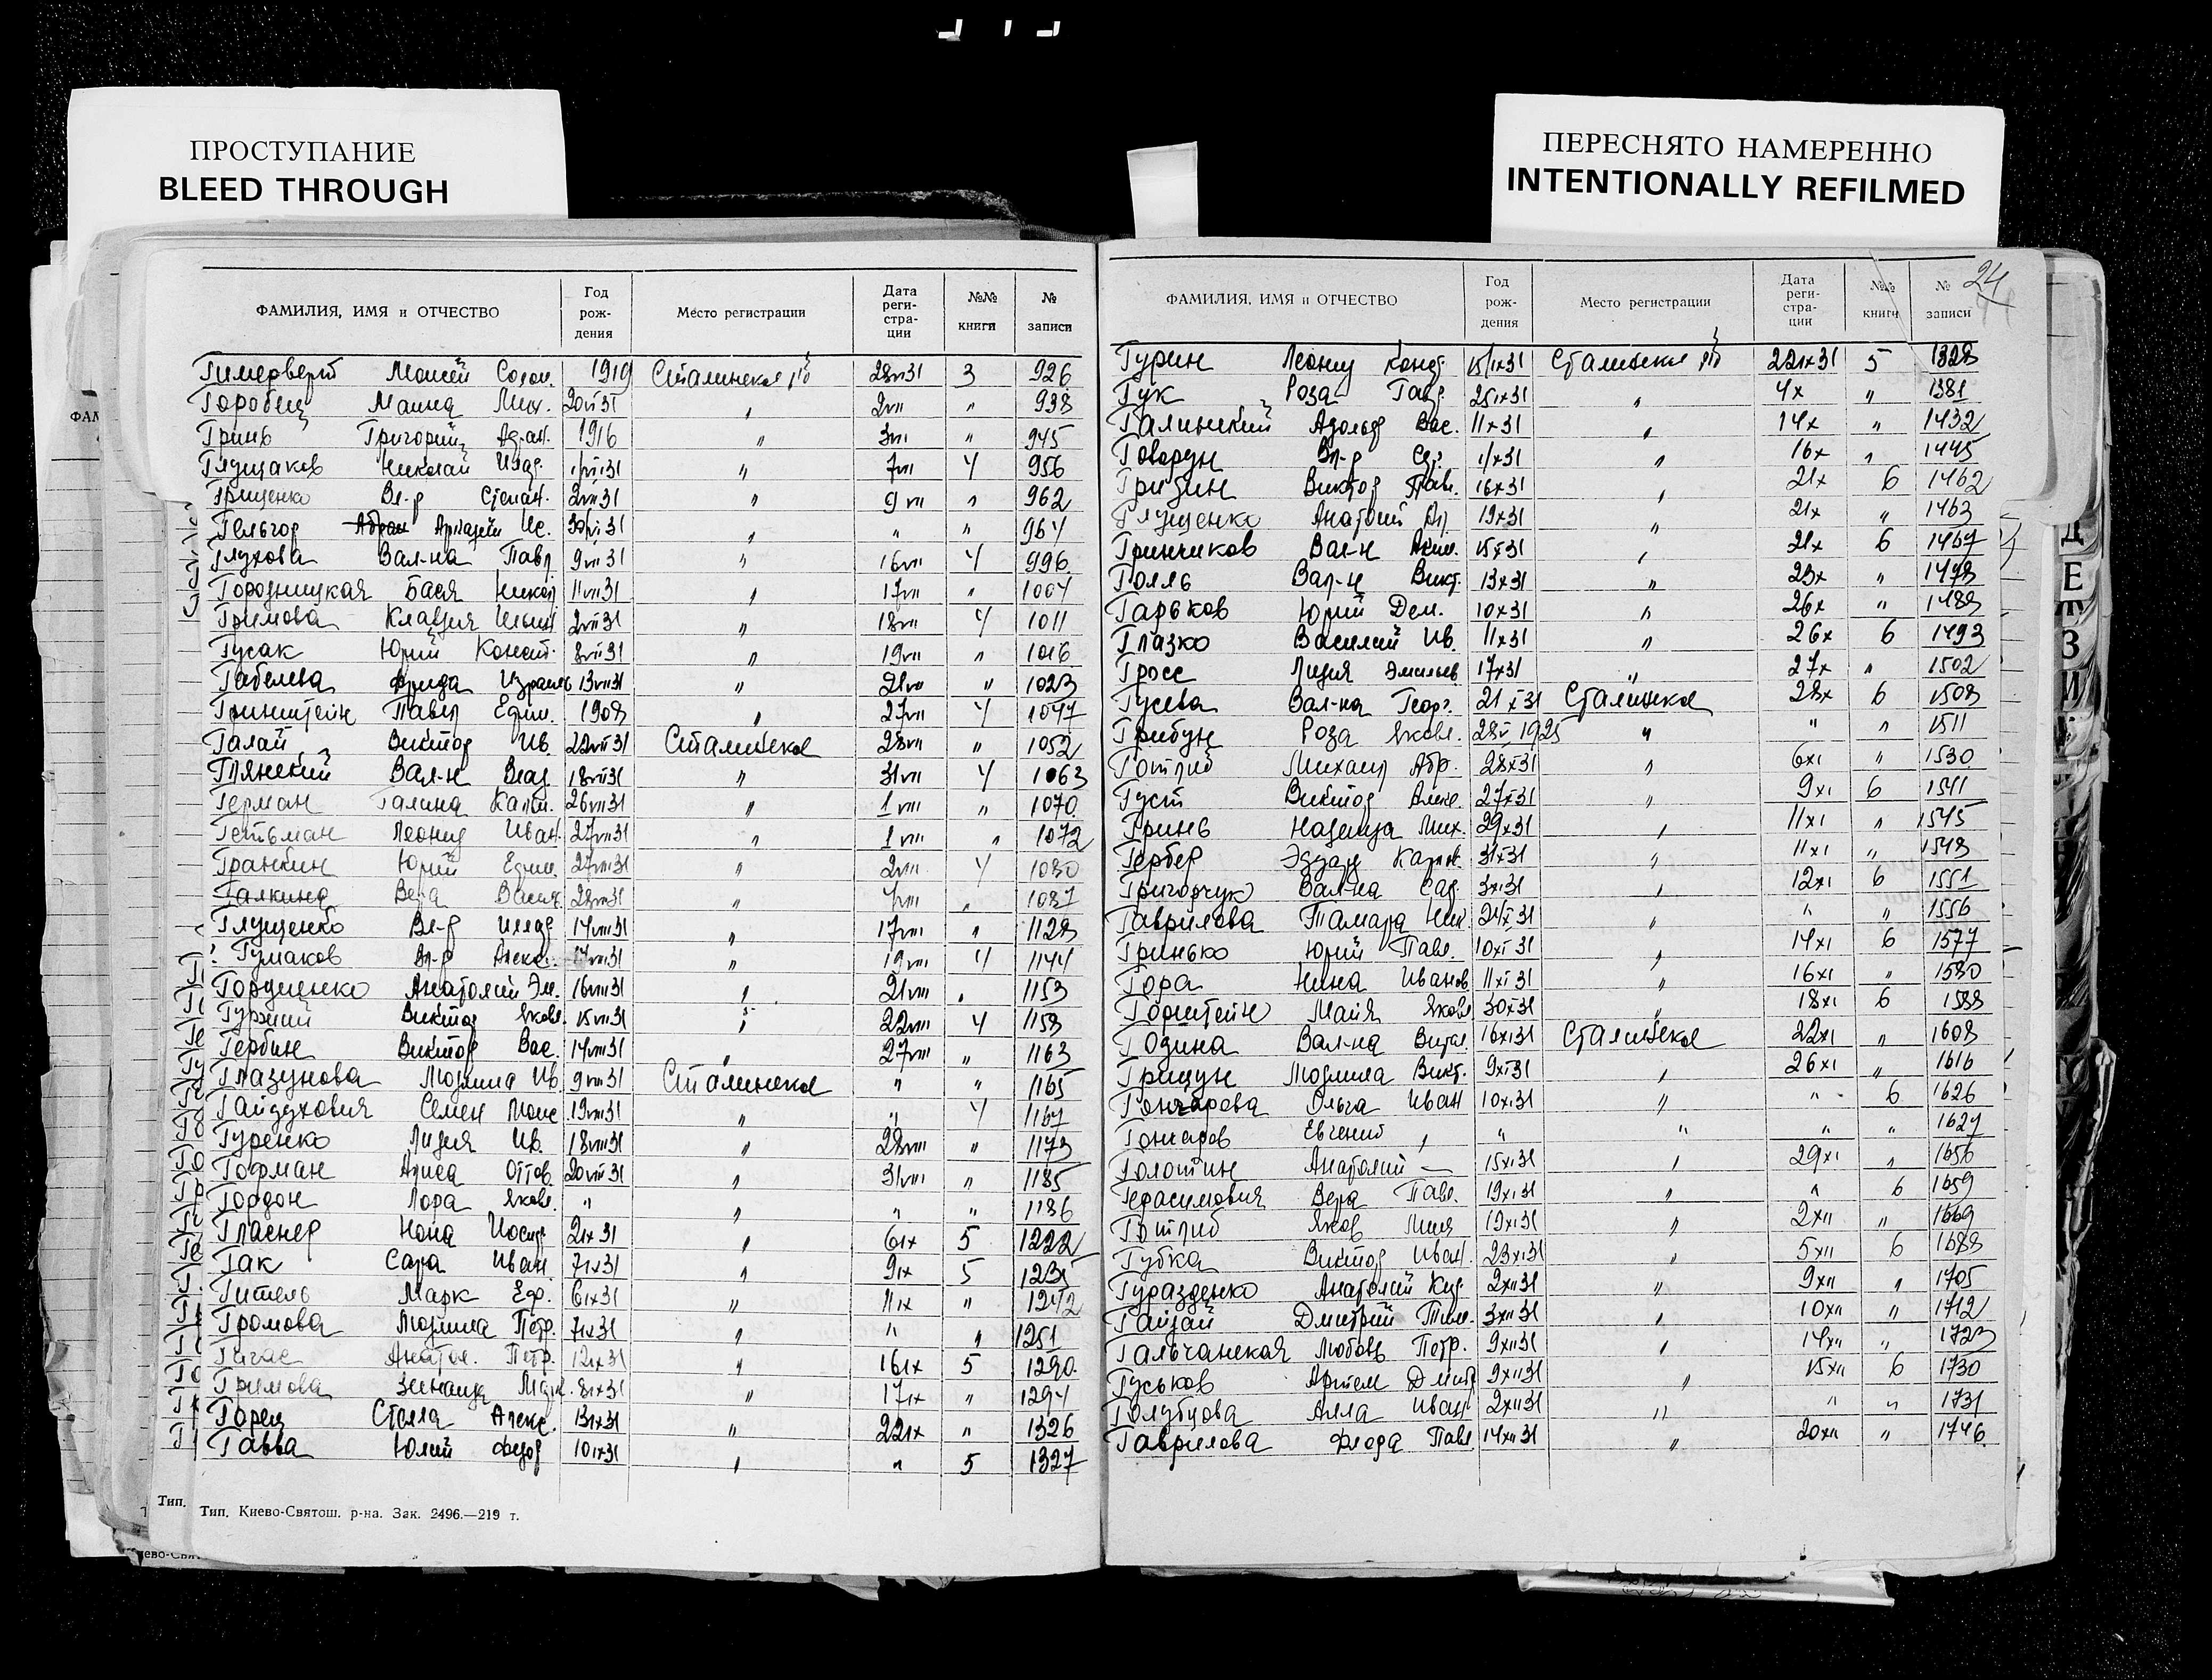 ПРОСТУПАНИЕ
BLEED THROUGH
ПЕРЕСНЯТО НАМЕРЕННО
INTENTIONALLY REFILMED
24
ФАМИЛИЯ, ИМЯ и ОТЧЕСТВО Год рож-дения Место регистрации Дата реги-стра-ции №№ книги № записи
Гимерверт Моисей Солом. 1919 Сталинское 28VI31 3 926
Горобец Маина Мих. 20VI31 " 2VII " 938
Гринь Григорий 1916 " 3VII " 945
Глущаков Николай 1/VII31 " 7VII 4 956
Грищенко Вл-р Степан. 2VII31 " 9VII " 962
Гельгор Абрам Аркадий Ис. 30/VI31 " " " 964
Глухова Вал-на Павл. 9VII31 " 16VII 4 996
Городницкая Бася 11VII31 " 17VII " 1004
Громова Клавдия Ильин 2VII31 " 18VII 4 1011
Гусак Юрий Конст. 8VII31 " 19VII " 1016
Габелева Фрида Израил 13VII31 " 21VII " 1023
Гринштейн Павел Ефим. 1908 " 27VII 4 1047
Галай Виктор Ив. 22VII31 Сталинское 28VII " 1052
Глянский Вал-н Влад. 18VII31 " 31VII 4 1063
Герман Галина 26VII31 " 1VIII " 1070
Гетьман Леонид Иван. 27VII31 " 1VIII " 1072
Гранкин Юрий Ефим. 27VII31 " 2VIII 4 1080
Галкина Вера Васил. 28VII31 " " 1087
Глущенко Вл-р 14VIII31 " 17VIII " 1128
? Гумаков Вл-р Алекс. 17VIII31 " 19VIII 4 1144
Гордиенко Анатолий Эм. 16VIII31 " 21VIII " 1153
Гуржий Виктор Яковл. 15VIII31 " 22VIII 4 1158
Гербин Виктор Вас. 14VIII31 " 27VIII " 1163
Глазунова Людмила Ив. 9VIII31 Сталинское " " 1165
Гайдухович Семен Моис 19VIII31 " " 4 1167
Гуренко Лидия Ив. 18VIII31 " 28VIII " 1173
Горман Алиса Оттов. 20VIII31 " 31VIII " 1185
Гордон Лора Яковл. " " " " 1186
Гласнер Нона Иосиф 2IX31 " 6IX 5 1222
Гак Сара Иван. 7IX31 " 9IX 5 1235
Гитель Марк Еф. 6IX31 " 11IX " 1242
Громова Людмила Петр. 7IX31 " " " 1251
Гигас Анатол. Петр. 12IX31 " 16IX 5 1290
Громова Зинаида 8IX31 " 17IX " 1294
Горец Стелла Алекс. 13IX31 " 22IX " 1326
Гавва Юлий Федор 10IX31 " " 5 1327
Тип. Киево-Святош. р-на. Зак. 2496.—219 т.
ФАМИЛИЯ, ИМЯ и ОТЧЕСТВО Год рож-дения Место регистрации Дата реги-стра-ции №№ книги № записи
Гурин Леонид Конд. 15/IX31 Сталинское 22IX31 5 1328
Гук Роза Гавр. 25IX31 " 4X " 1381
Галинский Адольф Вас. 11X31 " 14X " 1432
Говорун Вл-р 1/X31 " 16X " 1445
Грибин Виктор Павл. 16X31 " 21X 6 1462
Глущенко Анатолий 19X31 " 21X " 1463
Гринчиков Вал-н Аким. 15X31 " 21X 6 1467
Голль Вал-н Викт. 13X31 " 23X " 1478
Гарьков Юрий Дем. 10X31 " 26X " 1488
Глазко Василий Ив. 11X31 " 26X 6 1493
Гросс Лидия Эмильев 17X31 " 27X " 1502
Гусева Вал-на Георг. 21X31 Сталинское 28X 6 1508
Грибун Роза Яковл. 28V1925 " " " 1511
Готлиб Михаил Абр. 28X31 " 6XI " 1530
Густ Виктор Алекс. 27X31 " 9XI 6 1541
Гринь Надежда Мих. 29X31 " 11XI " 1545
Гербер Эдуард Карлов. 31X31 " 11XI " 1548
Григорчук Вал-на 3XI31 " 12XI 6 1551
Гаврилева Тамара Ник. 24X31 " " " 1556
Гринько Юрий Павл. 10XI31 " 14XI 6 1577
Гора Нина Иванов 11XI31 " 16XI " 1580
Горштейн Майя Яковл 30X31 " 18XI 6 1588
Година Вал-на Витал. 16XI31 Сталинское 22XI " 1608
Грицун Людмила Викт. 9XI31 " 26XI " 1616
Гончарова Ольга Иван 10XI31 " " 6 1626
Гончаров Евгений " " " " " 1627
Голотин Анатолий — 15XI31 " 29XI " 1656
Герасимович Вера Павл. 19XI31 " " 6 1659
Готлиб Яков 19XI31 " 2XII " 1669
Губка Виктор Иван. 23XI31 " 5XII 6 1688
Гуразденко Анатолий 2XII31 " 9XII " 1705
Гайдай Дмитрий Тим. 3XII31 " 10XII " 1712
Гальчанская Любовь Петр. 9XII31 " 14XII " 1723
Гуськов Артем Дмитр 9XII31 " 15XII 6 1730
Голубцова Алла Иван 2XII31 " " " 1731
Гаврилова Флора Павл 14XII31 " 20XII " 1746